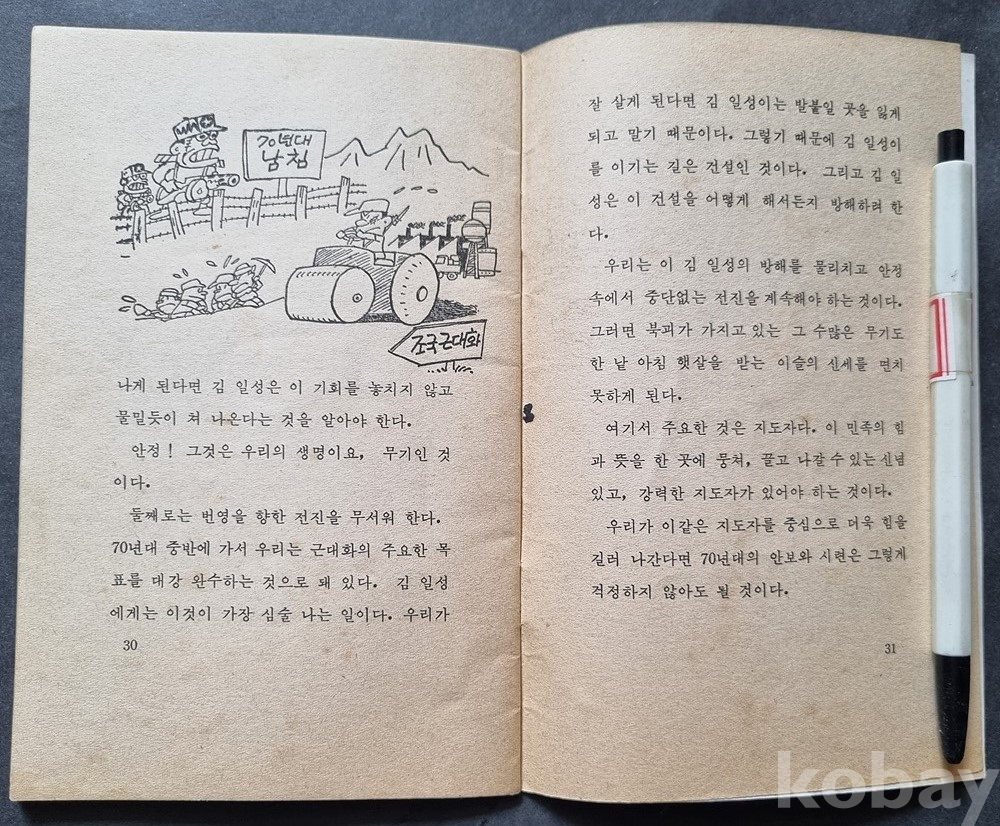 70년대
남침
조국근대화
나게 된다면 김 일성은 이 기회를 놓치지 않고
물밀듯이 쳐 나온다는 것을 알아야 한다.
안정! 그것은 우리의 생명이요, 무기인 것
이다.
둘째로는 번영을 향한 전진을 무서워 한다.
70년대 중반에 가서 우리는 근대화의 주요한 목
표를 대강 완수하는 것으로 돼 있다. 김 일성
에게는 이것이 가장 심술 나는 일이다. 우리가
30
잘 살게 된다면 김 일성이는 발붙일 곳을 잃게
되고 말기 때문이다. 그렇기 때문에 김 일성이
를 이기는 길은 건설인 것이다. 그리고 김 일
성은 이 건설을 어떻게 해서든지 방해하려 한
다.
우리는 이 김 일성의 방해를 물리치고 안정
속에서 중단없는 전진을 계속해야 하는 것이다.
그러면 북괴가 가지고 있는 그 수많은 무기도
한 낱 아침 햇살을 받는 이슬의 신세를 면치
못하게 된다.
여기서 주요한 것은 지도자다. 이 민족의 힘
과 뜻을 한 곳에 뭉쳐, 끌고 나갈 수 있는 신념
있고, 강력한 지도자가 있어야 하는 것이다.
우리가 이같은 지도자를 중심으로 더욱 힘을
길러 나간다면 70년대의 안보와 시련은 그렇게
걱정하지 않아도 될 것이다.
31
kobay